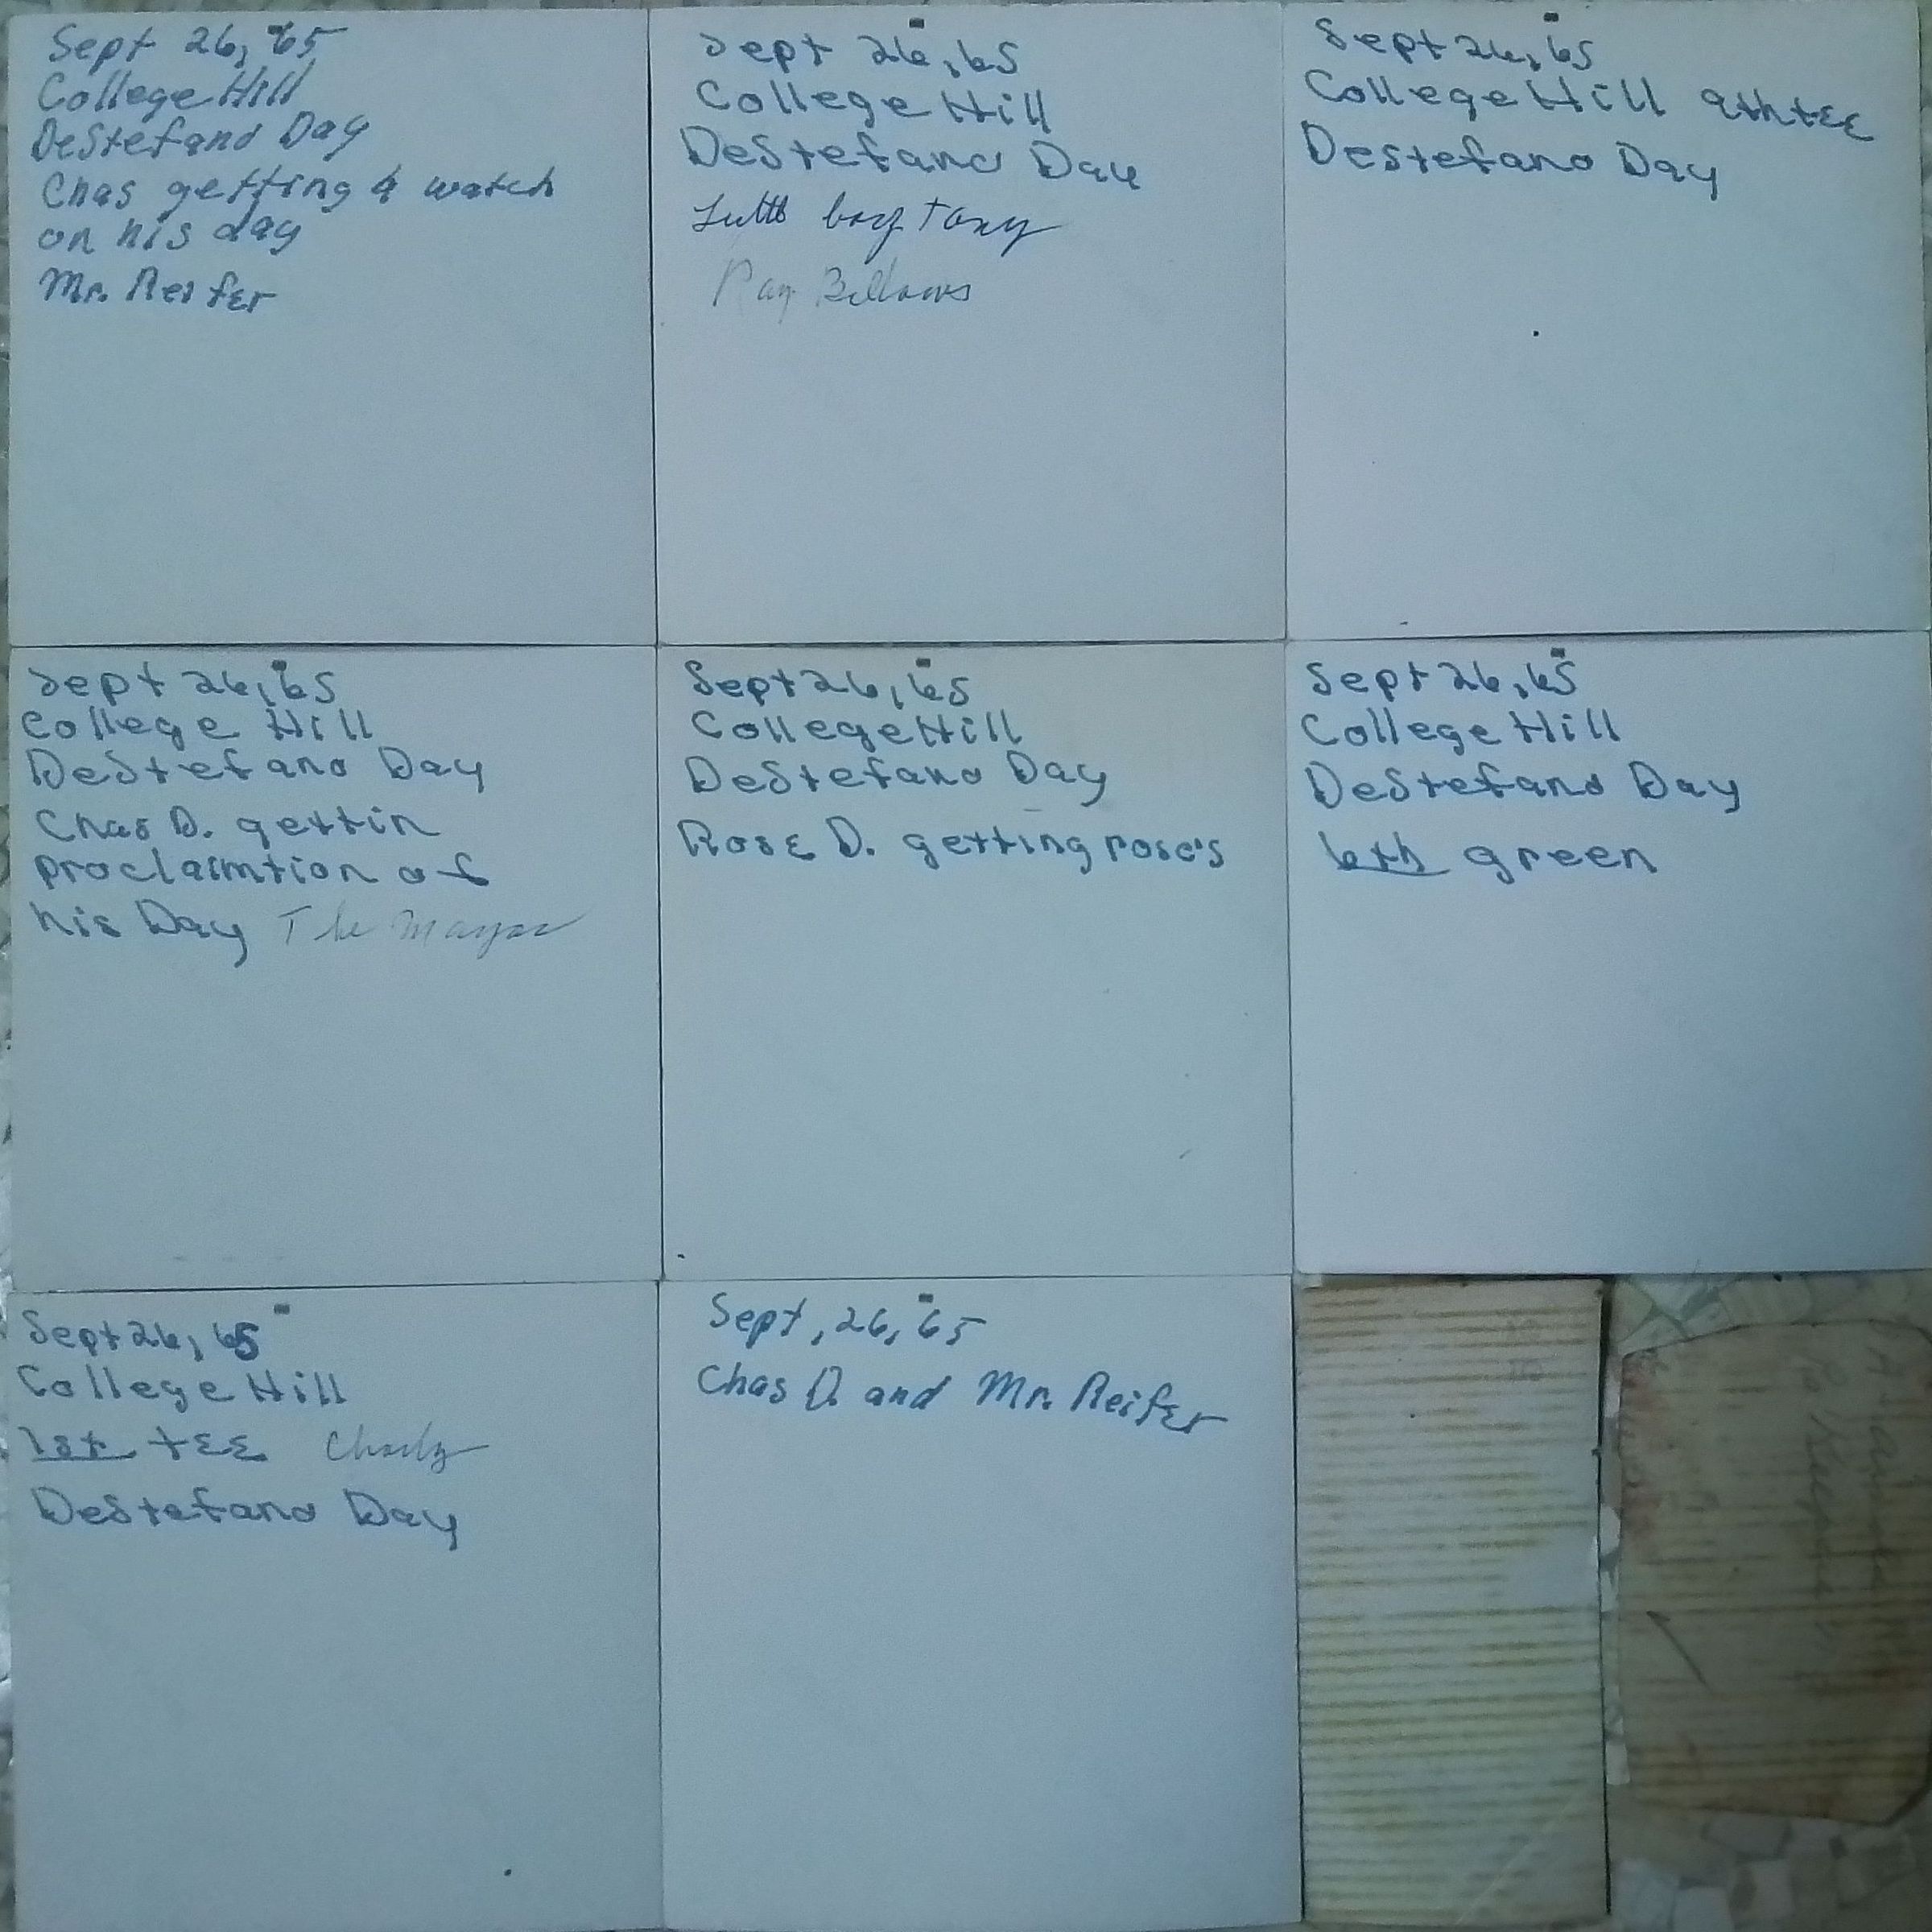 Sept 26, 65
College Hill
DeStefano Day
Chas getting a watch
on his day
Mr. Reifer
Sept 26, 65
College Hill
DeStefano Day
boy Tony
Ray Billows
Sept 26, 65
College Hill 9th tee
Destefano Day
Sept 26, 65
College Hill
DeStefano Day
Chas D. gettin
proclaimtion of
his Day The Mayor
Sept 26, 65
College Hill
DeStefano Day
Rose D. getting rose's
Sept 26, 65
College Hill
DeStefano Day
6th green
Sept 26, 65
College Hill
1st tee Charly
DeStefano Day
Sept, 26, 65
Chas D. and Mr. Reifer